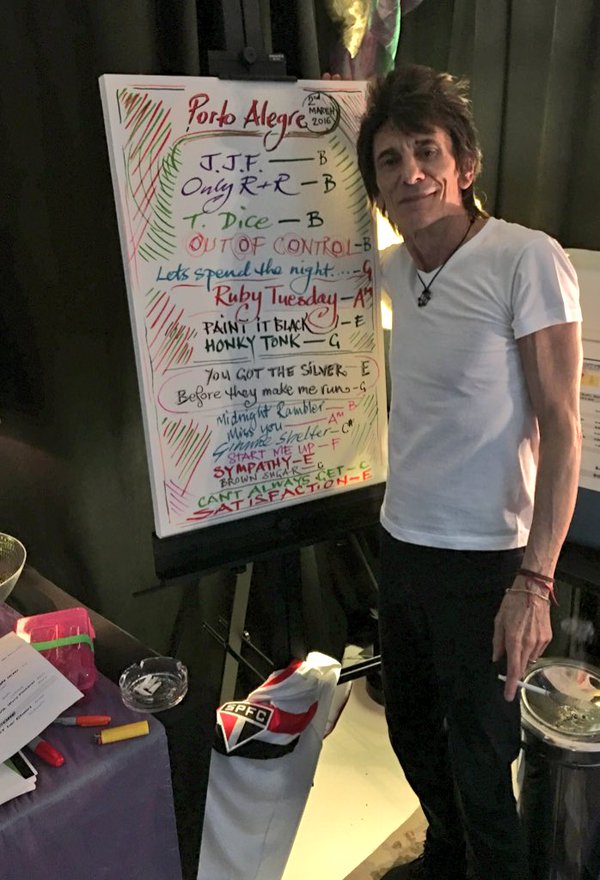 Porto Alegre
2nd
MARCH
2016
J.J.F. — B
Only R+R — B
T. Dice — B
OUT OF CONTROL - B
Lets spend the night.... - G
Ruby Tuesday - Am
PAINT IT BLACK - E
HONKY TONK - G
YOU GOT THE SILVER - E
Before they make me run - G
Midnight Rambler - B
Miss you - Am
Gimme Shelter - C#
START ME UP - F
SYMPATHY - E
BROWN SUGAR - C
CANT ALWAYS GET - C
SATISFACTION - E
SPFC